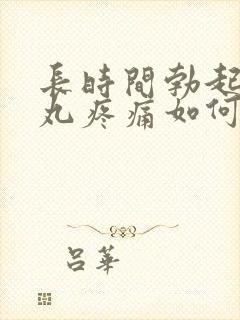 長時間勃起
丸疼痛如何
呂華